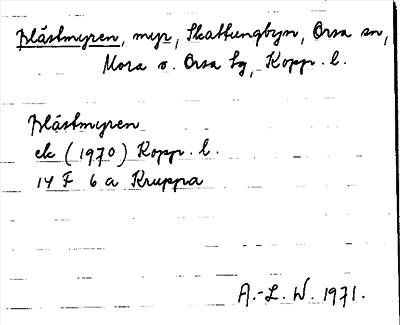 Plåstmyren, myr, Skattungbyn, Orsa sn,
Mora o. Orsa tg, Kopp. l.
Plåstmyren
ek (1970) Kopp. l.
14 F 6 a Kruppa
A.-L. W. 1971.